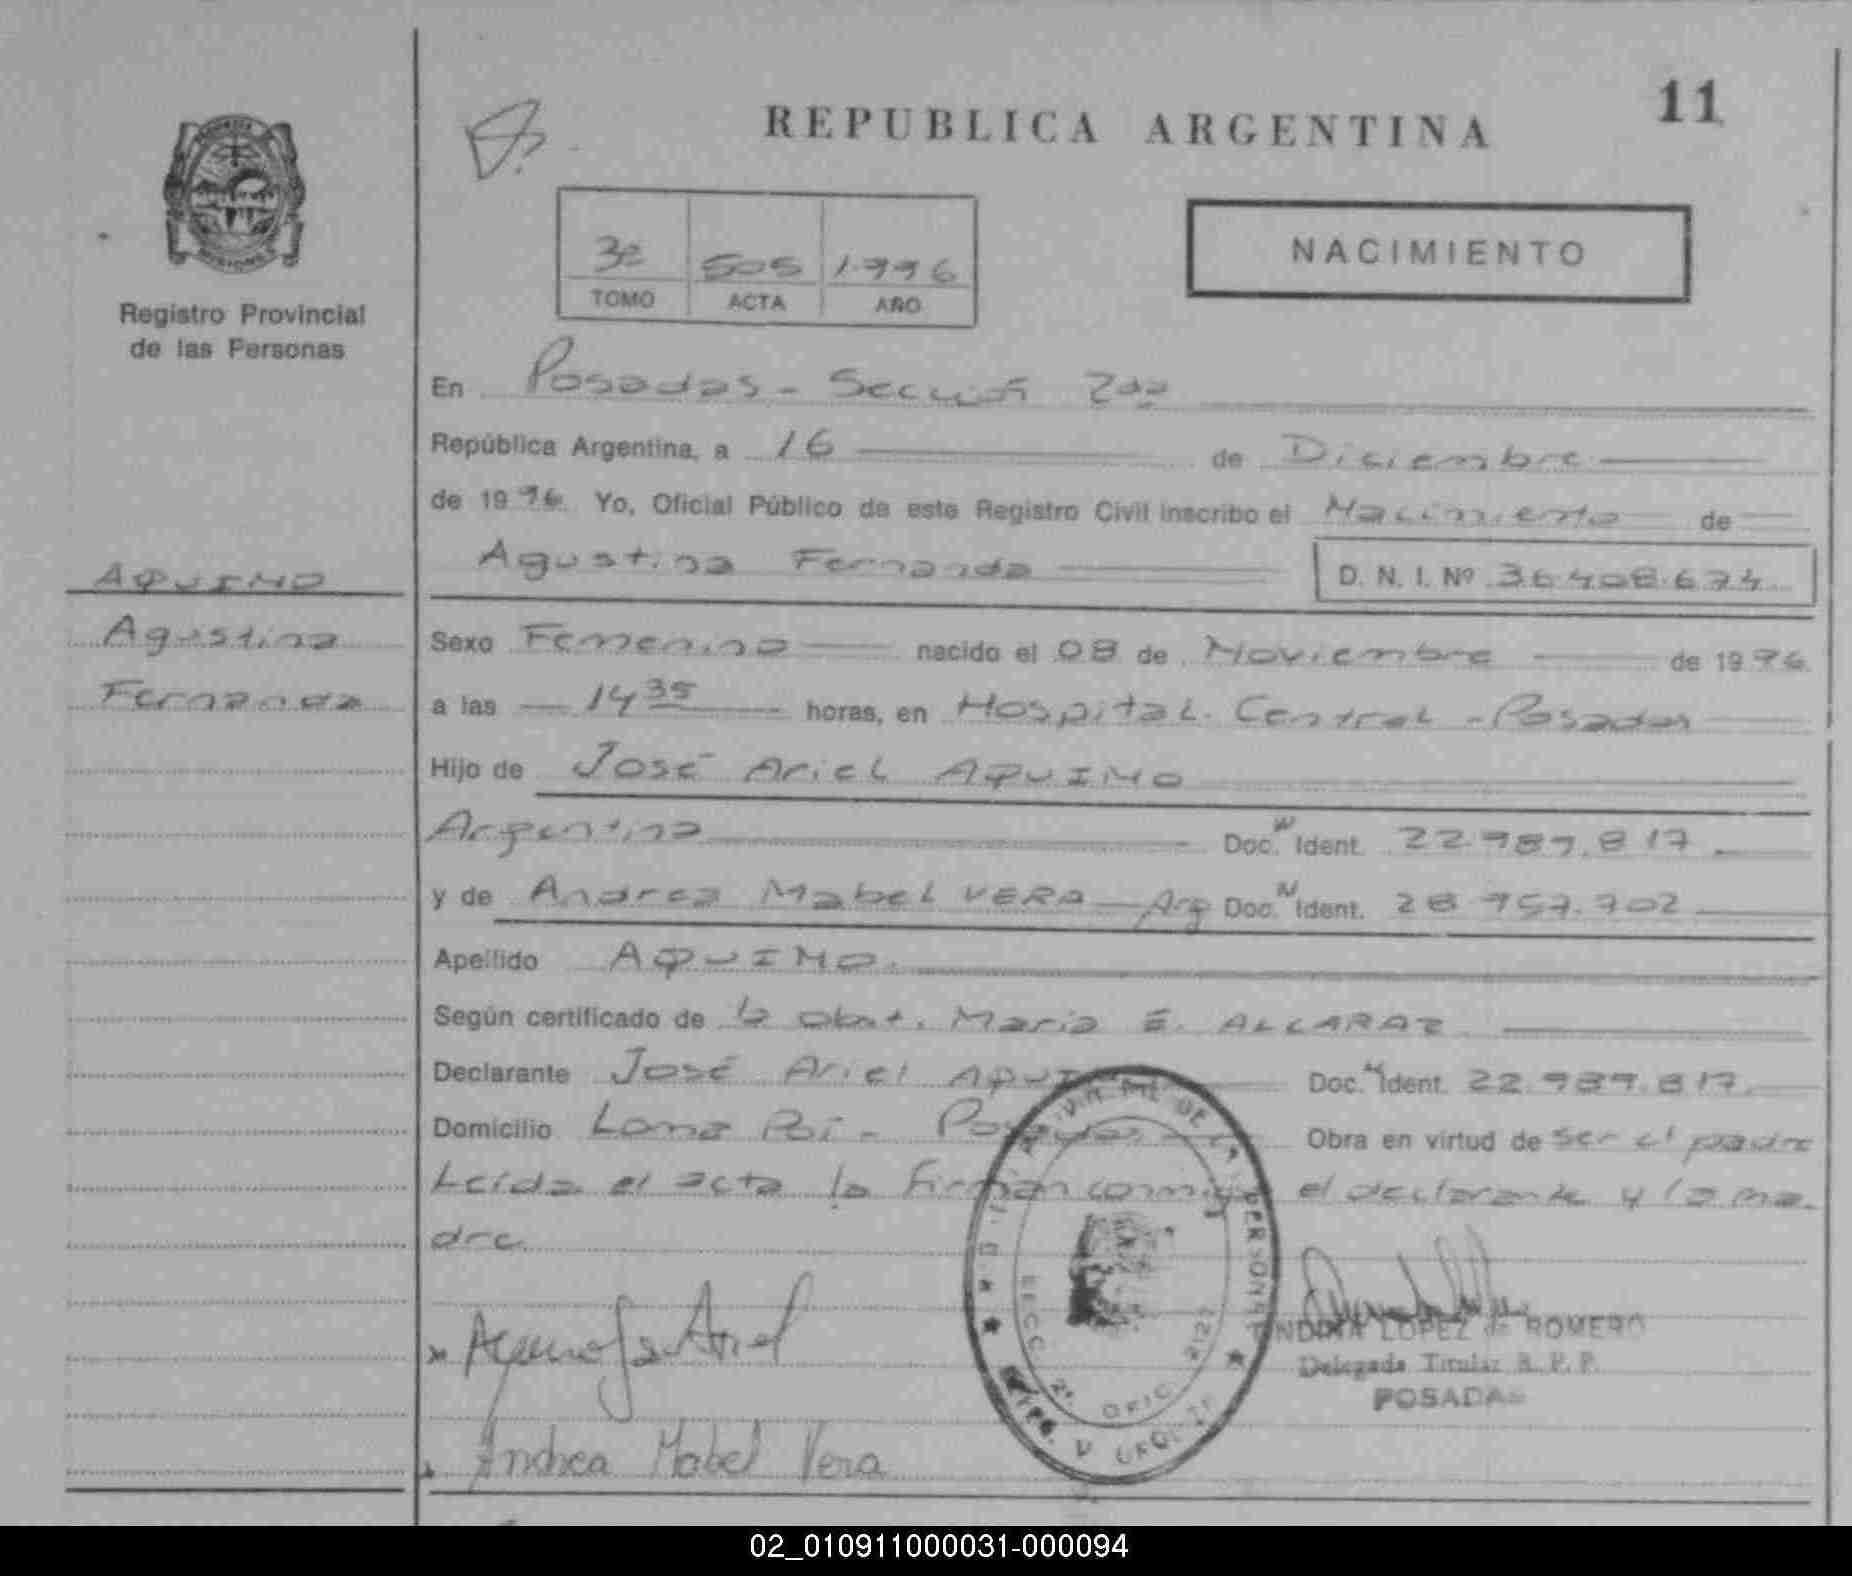 11
REPUBLICA ARGENTINA
NACIMIENTO
3º 505 1.996
TOMO ACTA AÑO
Registro Provincial
de las Personas
En Posadas - Sección 2da
República Argentina, a 16 de Diciembre
de 1996. Yo, Oficial Público de este Registro Civil inscribo el Nacimiento de
Agustina Fernanda D. N. I. Nº 36.408.674
AQUINO
Agustina
Fernanda
Sexo Femenino nacido el 08 de Noviembre de 1996
a las 14 35 horas, en Hospital Central - Posadas
Hijo de José Ariel AQUINO
Argentina Doc. N Ident. 22.989.817
y de Andrea Mabel VERA Arg Doc. N Ident. 28.957.702
Apellido AQUINO.
Según certificado de la obst. Maria E. ALCARAZ
Declarante José Ariel AQUINO Doc. N Ident. 22.989.817.
Domicilio Loma Poi - Posadas Obra en virtud de ser el padre
Leída el acta la firman conmigo el declarante y la ma-
dre.
Aquino José Ariel
LOPEZ de ROMERO
Delegada Titular R. P. P.
POSADAS
Andrea Mabel Vera
DE LAS PERSONAS
SECC 2ª OFIC
MISIONES
02_010911000031-000094